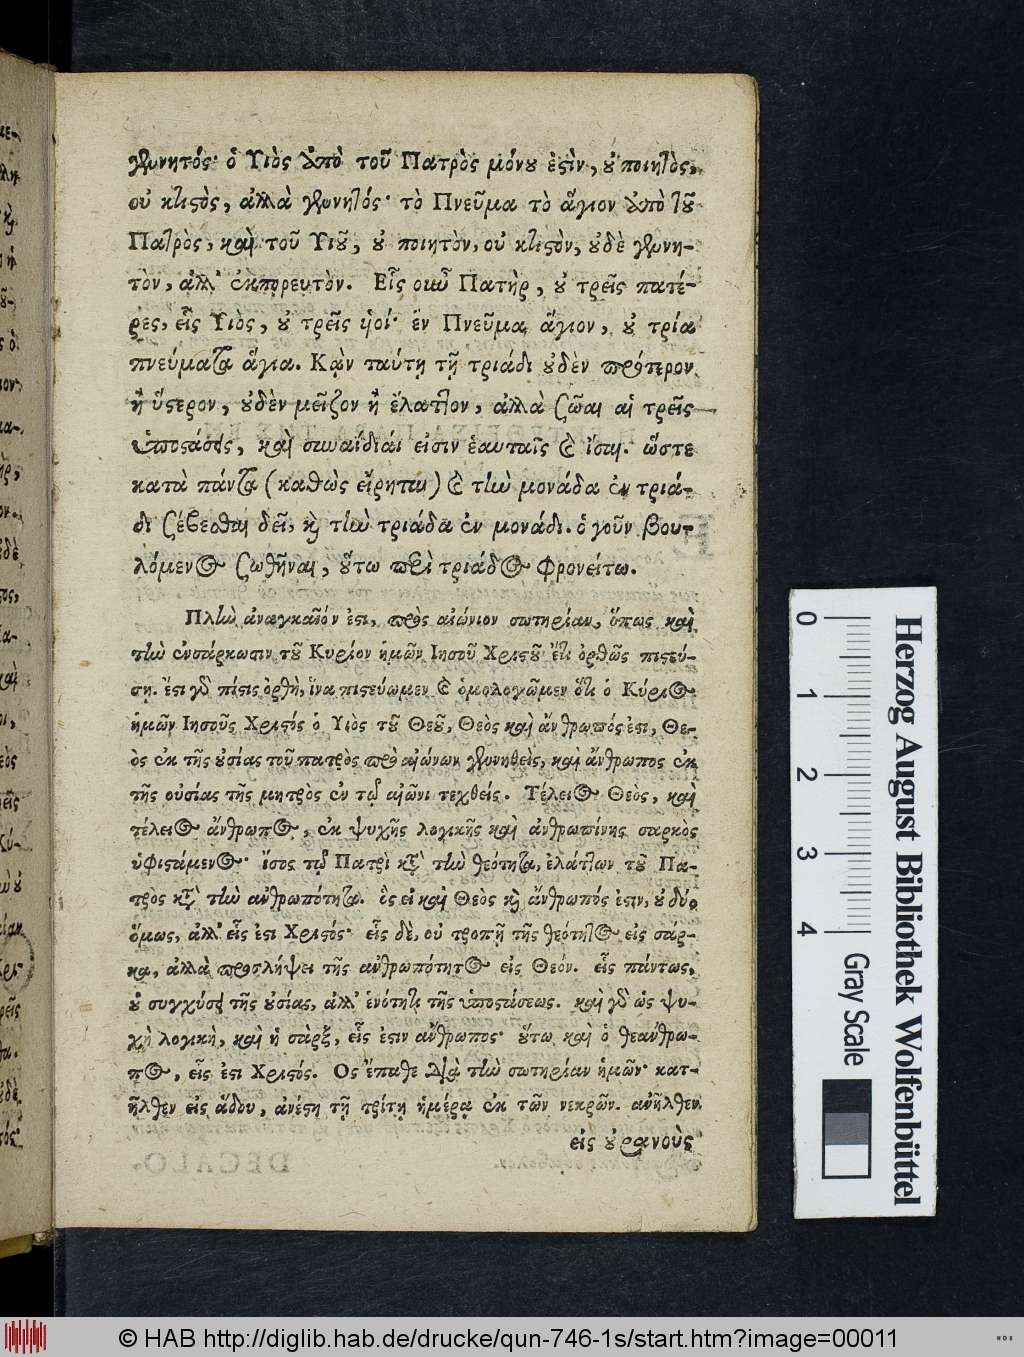 γεννητός· ὁ Υἱὸς ἀπὸ τοῦ Πατρὸς μόνου ἐστὶν, οὐ ποιητὸς,
οὐ κτιστὸς, ἀλλὰ γεννητός· τὸ Πνεῦμα τὸ ἅγιον ἀπὸ τοῦ
Πατρὸς, καὶ τοῦ Υἱοῦ, οὐ ποιητὸν, οὐ κτιστὸν, οὐδὲ γεννη-
τὸν, ἀλλ' ἐκπορευτὸν. Εἷς οὖν Πατὴρ, οὐ τρεῖς πατέ-
ρες, εἷς Υἱὸς, οὐ τρεῖς υἱοί· ἓν Πνεῦμα ἅγιον, οὐ τρία
πνεύματα ἅγια. Κᾀν ταύτῃ τῇ τριάδι οὐδὲν πρότερον
ἢ ὕστερον, οὐδὲν μεῖζον ἢ ἔλαττον, ἀλλὰ ζῶσαι αἱ τρεῖς
ὑποστάσεις, καὶ συναΐδιαί εἰσιν ἑαυταῖς καὶ ἴσαι. ὥστε
κατὰ πάντα (καθὼς εἴρηται) καὶ τὴν μονάδα ἐν τριά-
δι σέβεσθαι δεῖ, καὶ τὴν τριάδα ἐν μονάδι. ὁ γοῦν βου-
λόμενος σωθῆναι, οὕτω περὶ τριάδος φρονείτω.
Πλὴν ἀναγκαῖόν ἐστι, πρὸς αἰώνιον σωτηρίαν, ὅπως καὶ
τὴν ἐνσάρκωσιν τοῦ Κυρίου ἡμῶν Ιησοῦ Χριστοῦ ἔτι ὀρθῶς πιστεύ-
σῃ. ἔστι γὰρ πίστις ὀρθὴ, ἵνα πιστεύωμεν καὶ ὁμολογῶμεν ὅτι ὁ Κύριος
ἡμῶν Ιησοῦς Χριστός ὁ Υἱὸς τοῦ Θεοῦ, Θεὸς καὶ ἄνθρωπός ἐστι, Θε-
ὸς ἐκ τῆς οὐσίας τοῦ πατρὸς πρὸ αἰώνων γεννηθεὶς, καὶ ἄνθρωπος ἐκ
τῆς οὐσίας τῆς μητρὸς ἐν τῷ αἰῶνι τεχθείς. Τέλειος Θεὸς, καὶ
τέλειος ἄνθρωπος, ἐκ ψυχῆς λογικῆς καὶ ἀνθρωπίνης σαρκὸς
ὑφιστάμενος· ἴσος τῷ Πατρὶ κατὰ τὴν θεότητα, ἐλάττων τοῦ Πα-
τρος κατὰ τὴν ἀνθρωπότητα. ὃς εἰ καὶ Θεὸς καὶ ἄνθρωπός ἐστιν, οὐ δύο
ὅμως, ἀλλ' εἷς ἐστι Χριστός· εἷς δὲ, οὐ τροπῇ τῆς θεότητος εἰς σάρ-
κα, ἀλλὰ προσλήψει τῆς ἀνθρωπότητος εἰς Θεόν. εἷς πάντως,
οὐ συγχύσει τῆς οὐσίας, ἀλλ' ἑνότητι τῆς ὑποστάσεως. καὶ γὰρ ὡς ψυ-
χὴ λογικὴ, καὶ ἡ σὰρξ, εἷς ἐστιν ἄνθρωπος· οὕτω καὶ ὁ θεάνθρω-
πος, εἷς ἐστι Χριστός. Ος ἔπαθε διὰ τὴν σωτηρίαν ἡμῶν· κατ-
ῆλθεν εἰς ᾅδου, ἀνέστη τῇ τρίτῃ ἡμέρᾳ ἐκ τῶν νεκρῶν. ἀνῆλθεν
εἰς οὐρανοὺς
0 1 2 3 4
Gray Scale
Herzog August Bibliothek Wolfenbüttel
© HAB http://diglib.hab.de/drucke/qun-746-1s/start.htm?image=00011